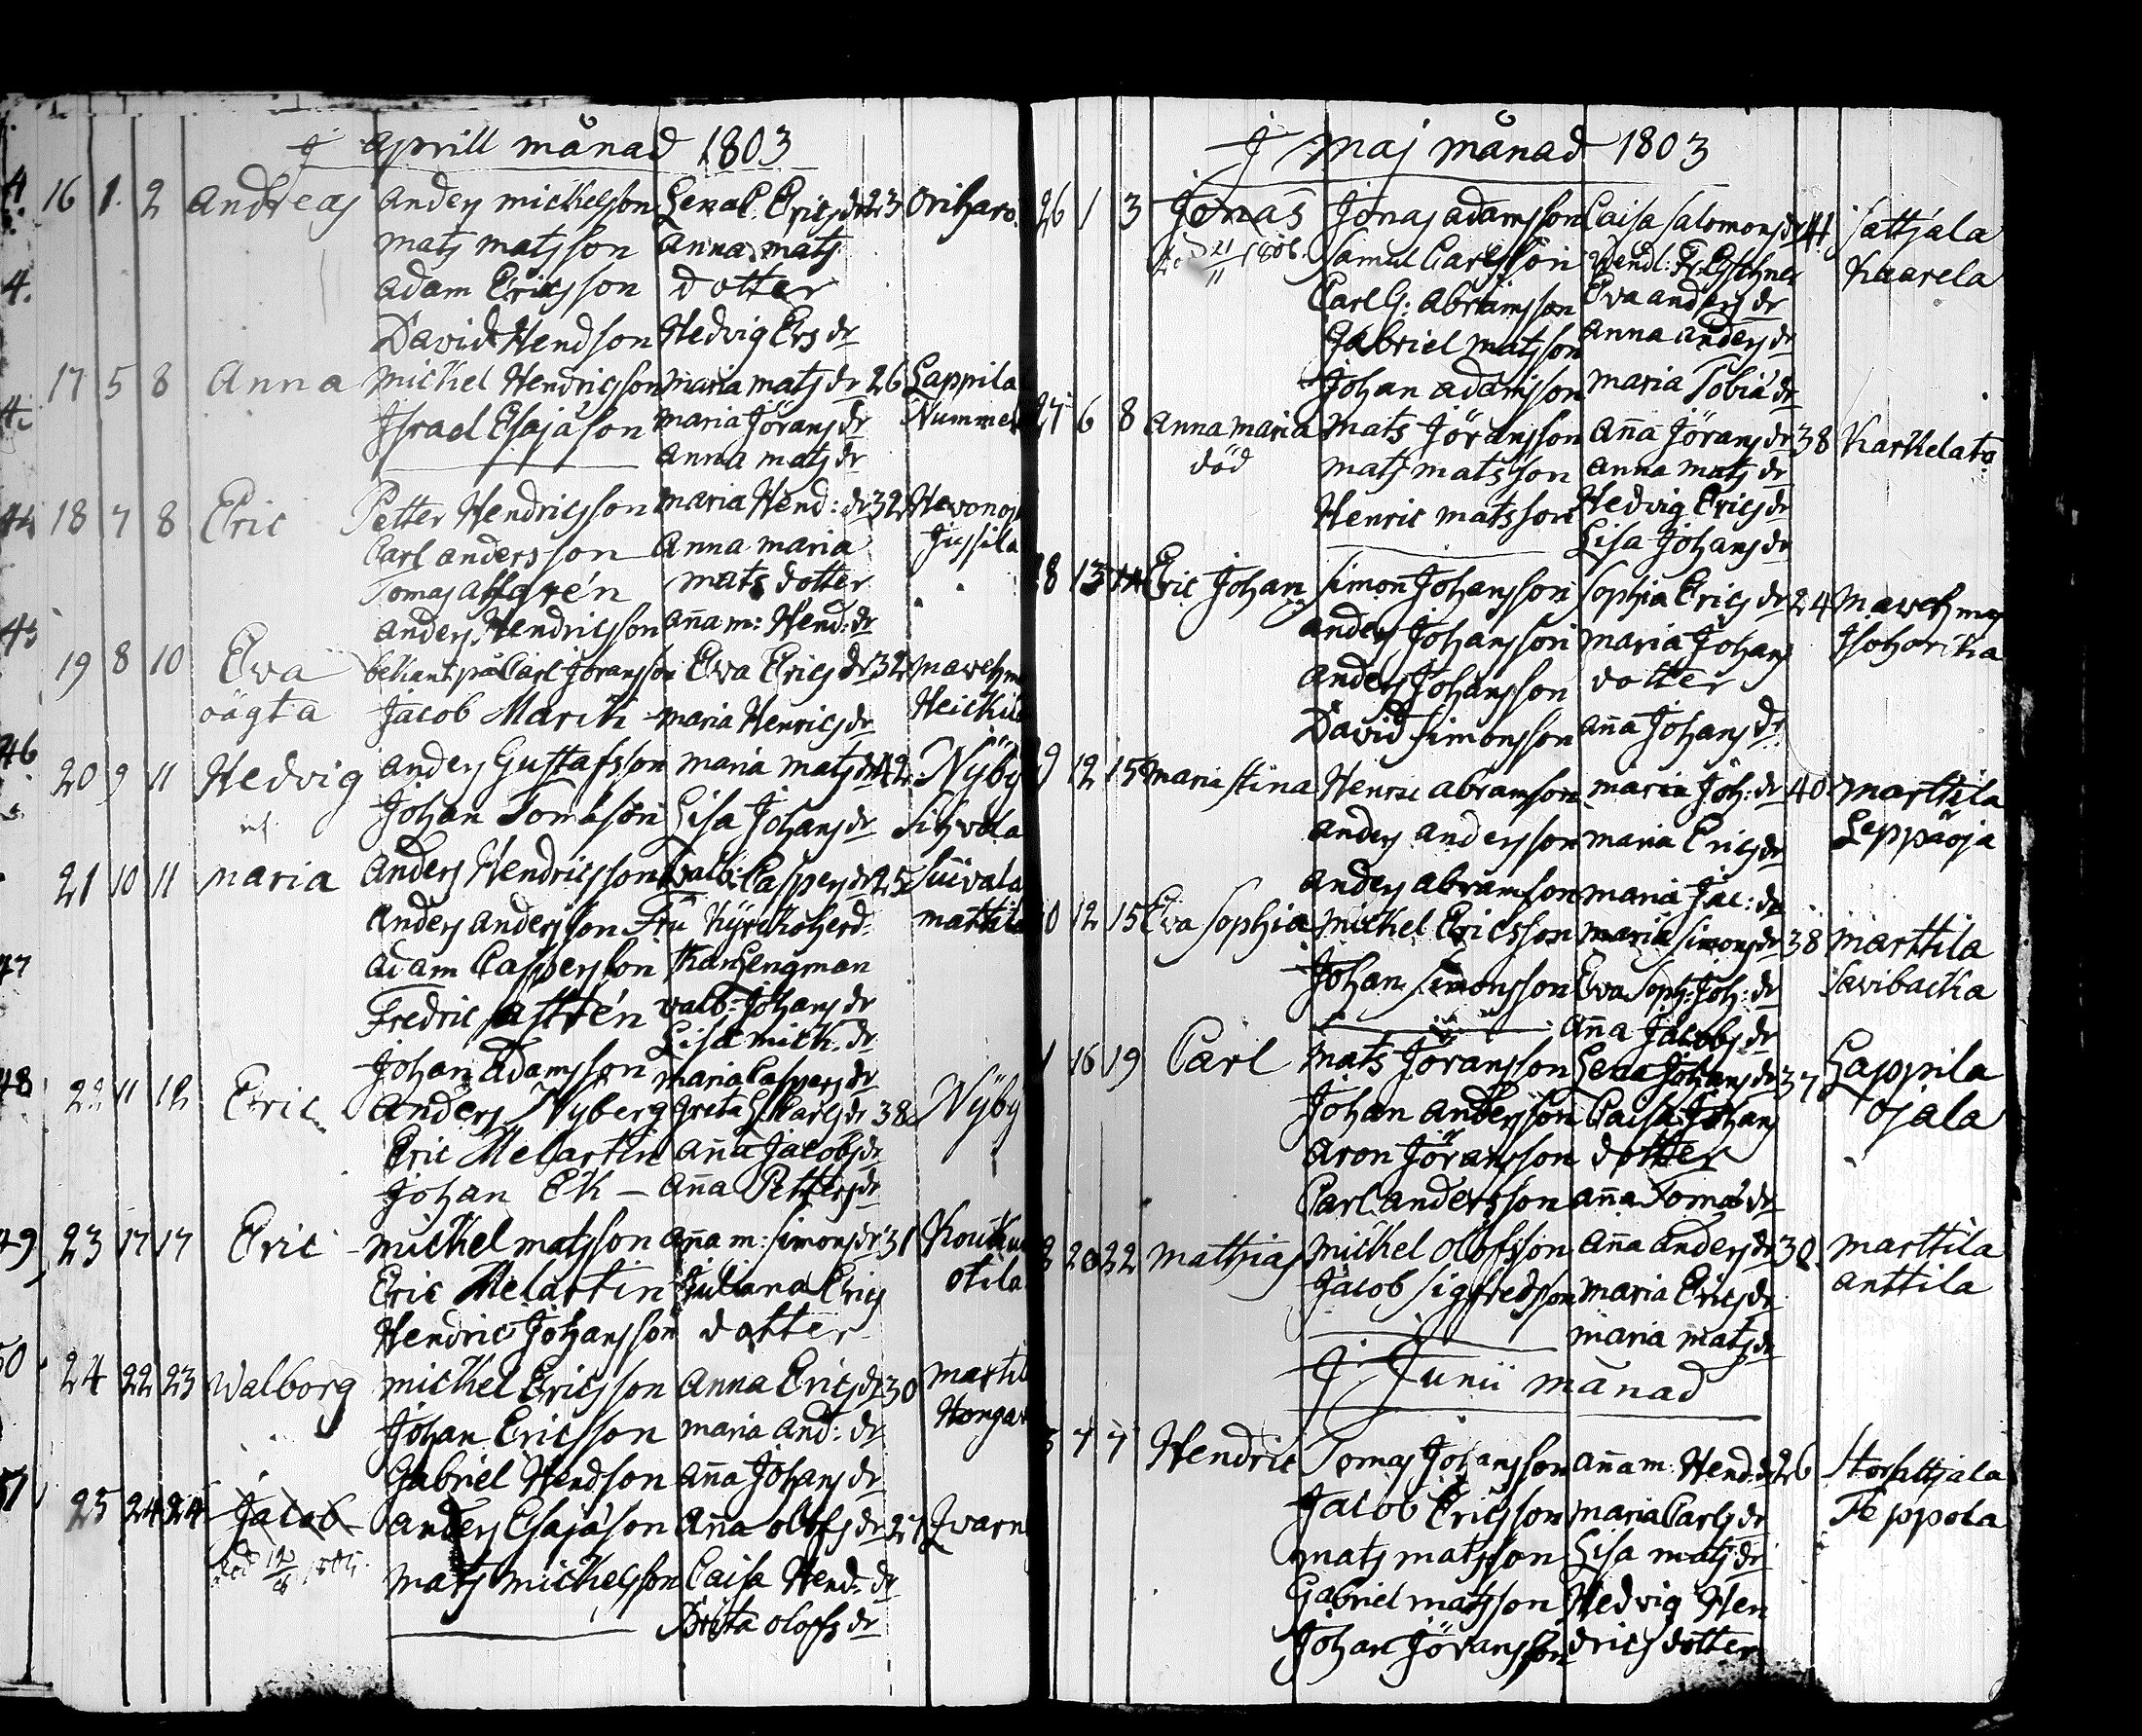 J aprill månad 1803
16 1. 2 Andreas Anders Michelsson Lena C. Ericsdr 23 Oriharo.
Mats Matsson Anna Mats
Adam Ericsson dotter
David Hendson Hedvig Ersdr
17 5 8 Anna Michel Hendricsson Maria Matsdr 26 Lappila
Israel Esajason Maria Jöransdr Nummel
Anna Matsdr
18 7 8 Eric Petter Hendricsson Maria Hend:dr 32 Hevonoj
Carl Andersson Anna Maria Jussila
Tomas mats dotter
Anders Hendricsson Anna m: Hend:dr
19 8 10 Eva bekant på Carl Jöransson Eva Ericsdr 32 Mawehm
oägta Jacob Marik Maria Henricsdr Heickil
20 9 11 Hedvig Anders Gustafsson Maria Matsdr 42 Nyby
Johan Tomason Lisa Johansdr Sihvola
21 10 11 Maria Anders Hendricsson Walb: Caspersdr 25 Siivala
Anders Andersson Fru Kyrckoherd. Mattila
Adam Caspersson Lengman
Fredric Astrén Walb: Johansdr
Lisa Mich.dr
Johan Adamsson Maria Caspersdr
22 11 12 Eric Anders Nyberg Greta L. Carlsdr 38 Nyby
Eric Melartin Anna Jacobsdr
Johan Ek Anna Pettersdr
23 17 17 Eric Michel Matsson Anna m: Simonsdr 31 Kouk
Eric Melartin Juliana Erics Otila
Hendric Johansson dotter
24 22 23 Walborg Michel Ericsson Anna Ericsdr 30 Martil
Johan Ericsson Maria And:dr Hongar
Gabriel Hendson Anna Johansdr
25 24 24 Jacob Anders Esajason Anna Olofsdr 27 Qvarn
död Mats Michelsson Caisa Hend:dr
Brita Olofsdr
J Maj månad 1803
26 1 3 Jonas Jonas Adamsson Caisa Salomonsdr 41 Sattjala
Död 21/11 1806. Samul Carlsson Kaarela
Carl G: Abramsson Eva Andersdr
Gabriel Matsson Anna Andersdr
Johan Adamsson Maria Tobiadr
27 6 8 Anna Maria Mats Jöransson Anna Jöransdr 38 Karhelato
död Mats Matsson Anna Matsdr
Henric Matsson Hedvig Ericsdr
Lisa Johansdr
8 13 14 Eric Johan Simon Johansson Sophia Ericsdr 24 Mawehma
Anders Johansson Maria Johans Isohorika
Anders Johansson dotter
David Simonsson Anna Johansdr
9 12 15 Maria Stina Henric Abramson Maria Joh:dr 40 Marttila
Anders Andersson Maria Ericsdr Leppäoja
Anders Abramson Maria Jac:dr
0 12 15 Eva Sophia Michel Ericsson Maria Simonsdr 38 Marttila
Johan Simonsson Eva Soph: Joh:dr Savibacka
Anna Jacobsdr
1 16 19 Carl Mats Jöransson Lena Johansdr 37 Lappila
Johan Andersson Caisa Johans Ojala
Aron Jöransson dotter
Carl Andersson Anna Tomasdr
20 22 Mathias Michel Olofsson Anna Andersdr 30 Marttila
Jacob Sigfredson Maria Ericsdr Anttila
Maria Matsdr
J Junii månad
7 7 Hendric Tomas Johansson Anna m: Hend:dr 26 Storsattjala
Jacob Ericsson Maria Carlsdr Teppola
Mats Matsson Lisa Matsdr
Gabriel Matsson Hedvig Hen
Johan Jöransson dricsdotter